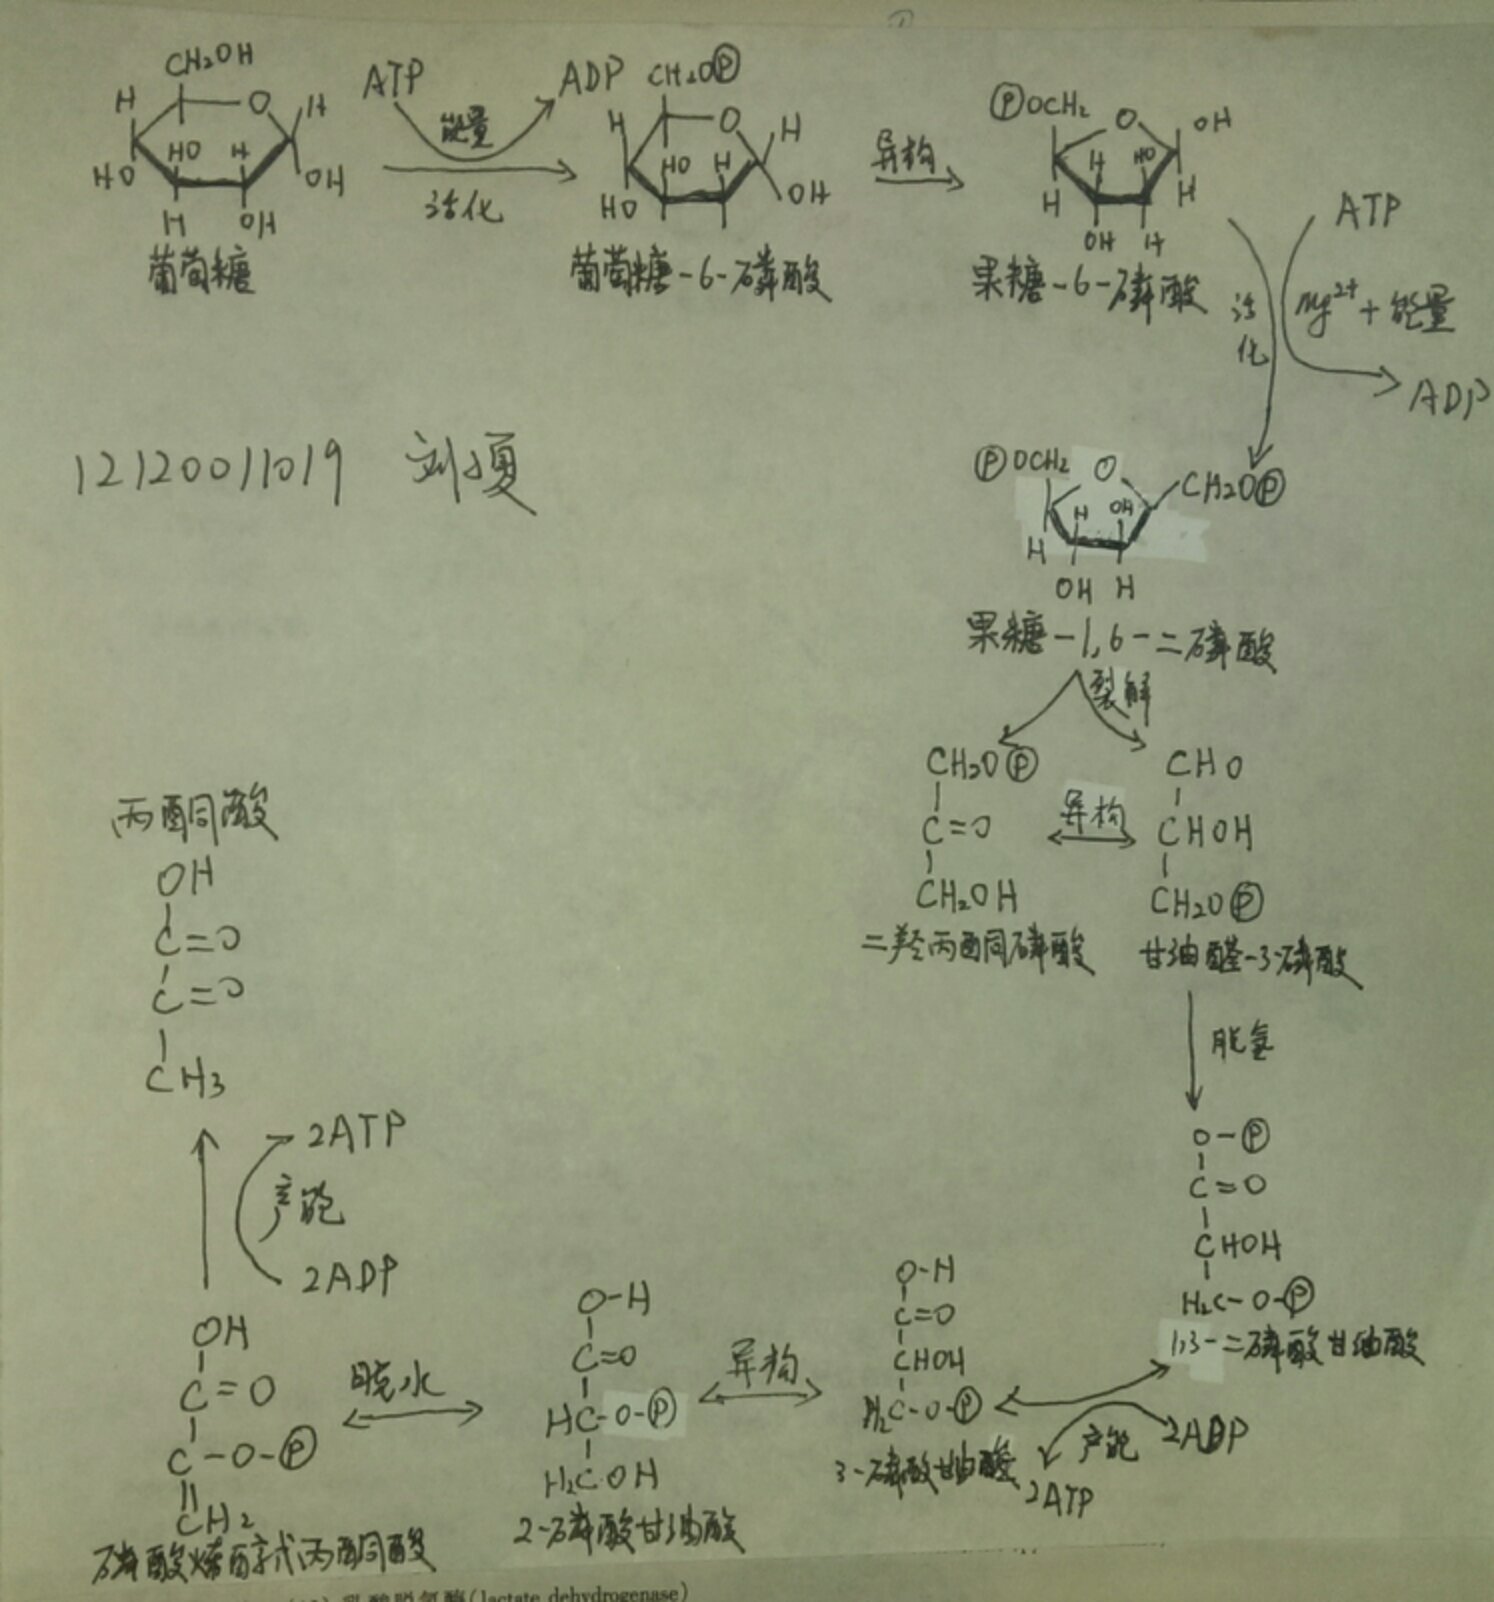 CH₂OH
H O H
HO H
HO OH
H OH
葡萄糖
ATP ADP
能量
活化
CH₂OⓅ
H O H
HO H
HO OH
葡萄糖-6-磷酸
异构
ⓅOCH₂ O OH
H HO
H H
OH H
果糖-6-磷酸
ATP
活化
Mg²⁺+能量
ADP
12120011019
ⓅOCH₂ O CH₂OⓅ
H OH
H
OH H
果糖-1,6-二磷酸
裂解
CH₂OⓅ
C=O
CH₂OH
二羟丙酮磷酸
异构
CHO
CHOH
CH₂OⓅ
甘油醛-3-磷酸
脱氢
O-Ⓟ
C=O
CHOH
H₂C-O-Ⓟ
1,3-二磷酸甘油酸
2ADP
产能
2ATP
O-H
C=O
CHOH
H₂C-O-Ⓟ
3-磷酸甘油酸
异构
O-H
C=O
HC-O-Ⓟ
H₂C-OH
2-磷酸甘油酸
脱水
OH
C=O
C-O-Ⓟ
CH₂
磷酸烯醇式丙酮酸
2ADP
产能
2ATP
丙酮酸
OH
C=O
C=O
CH₃
乳酸脱氢酶(lactate dehydrogenase)